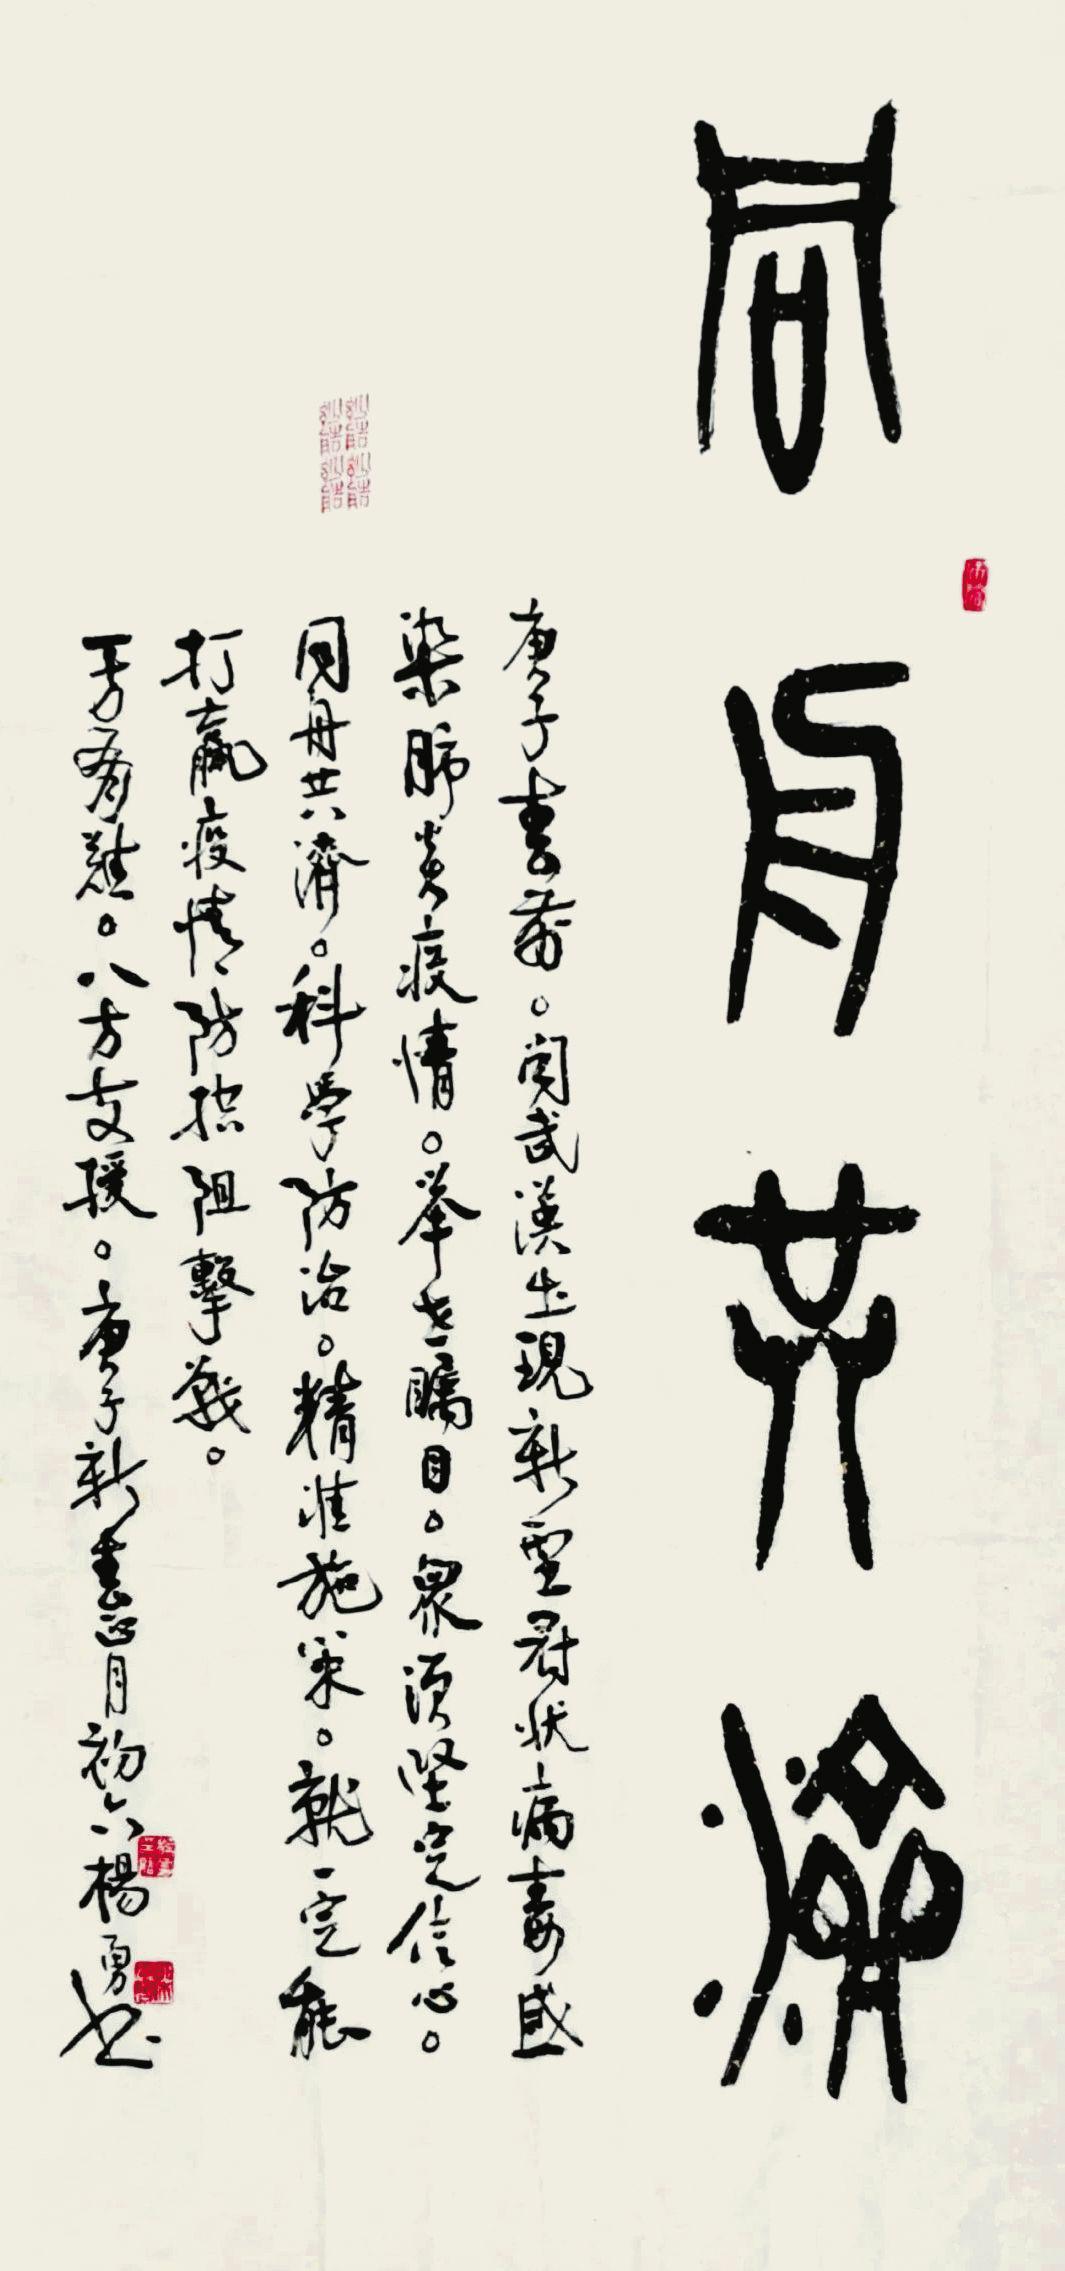 同舟共濟
庚子春節。聞武漢出現新型冠狀病毒感
染肺炎疫情。舉世矚目。衆須堅定信心。
同舟共濟。科學防治。精准施策。就一定能
打贏疫情防控阻擊戰。
一方有難。八方支援。庚子新春正月初六楊勇書